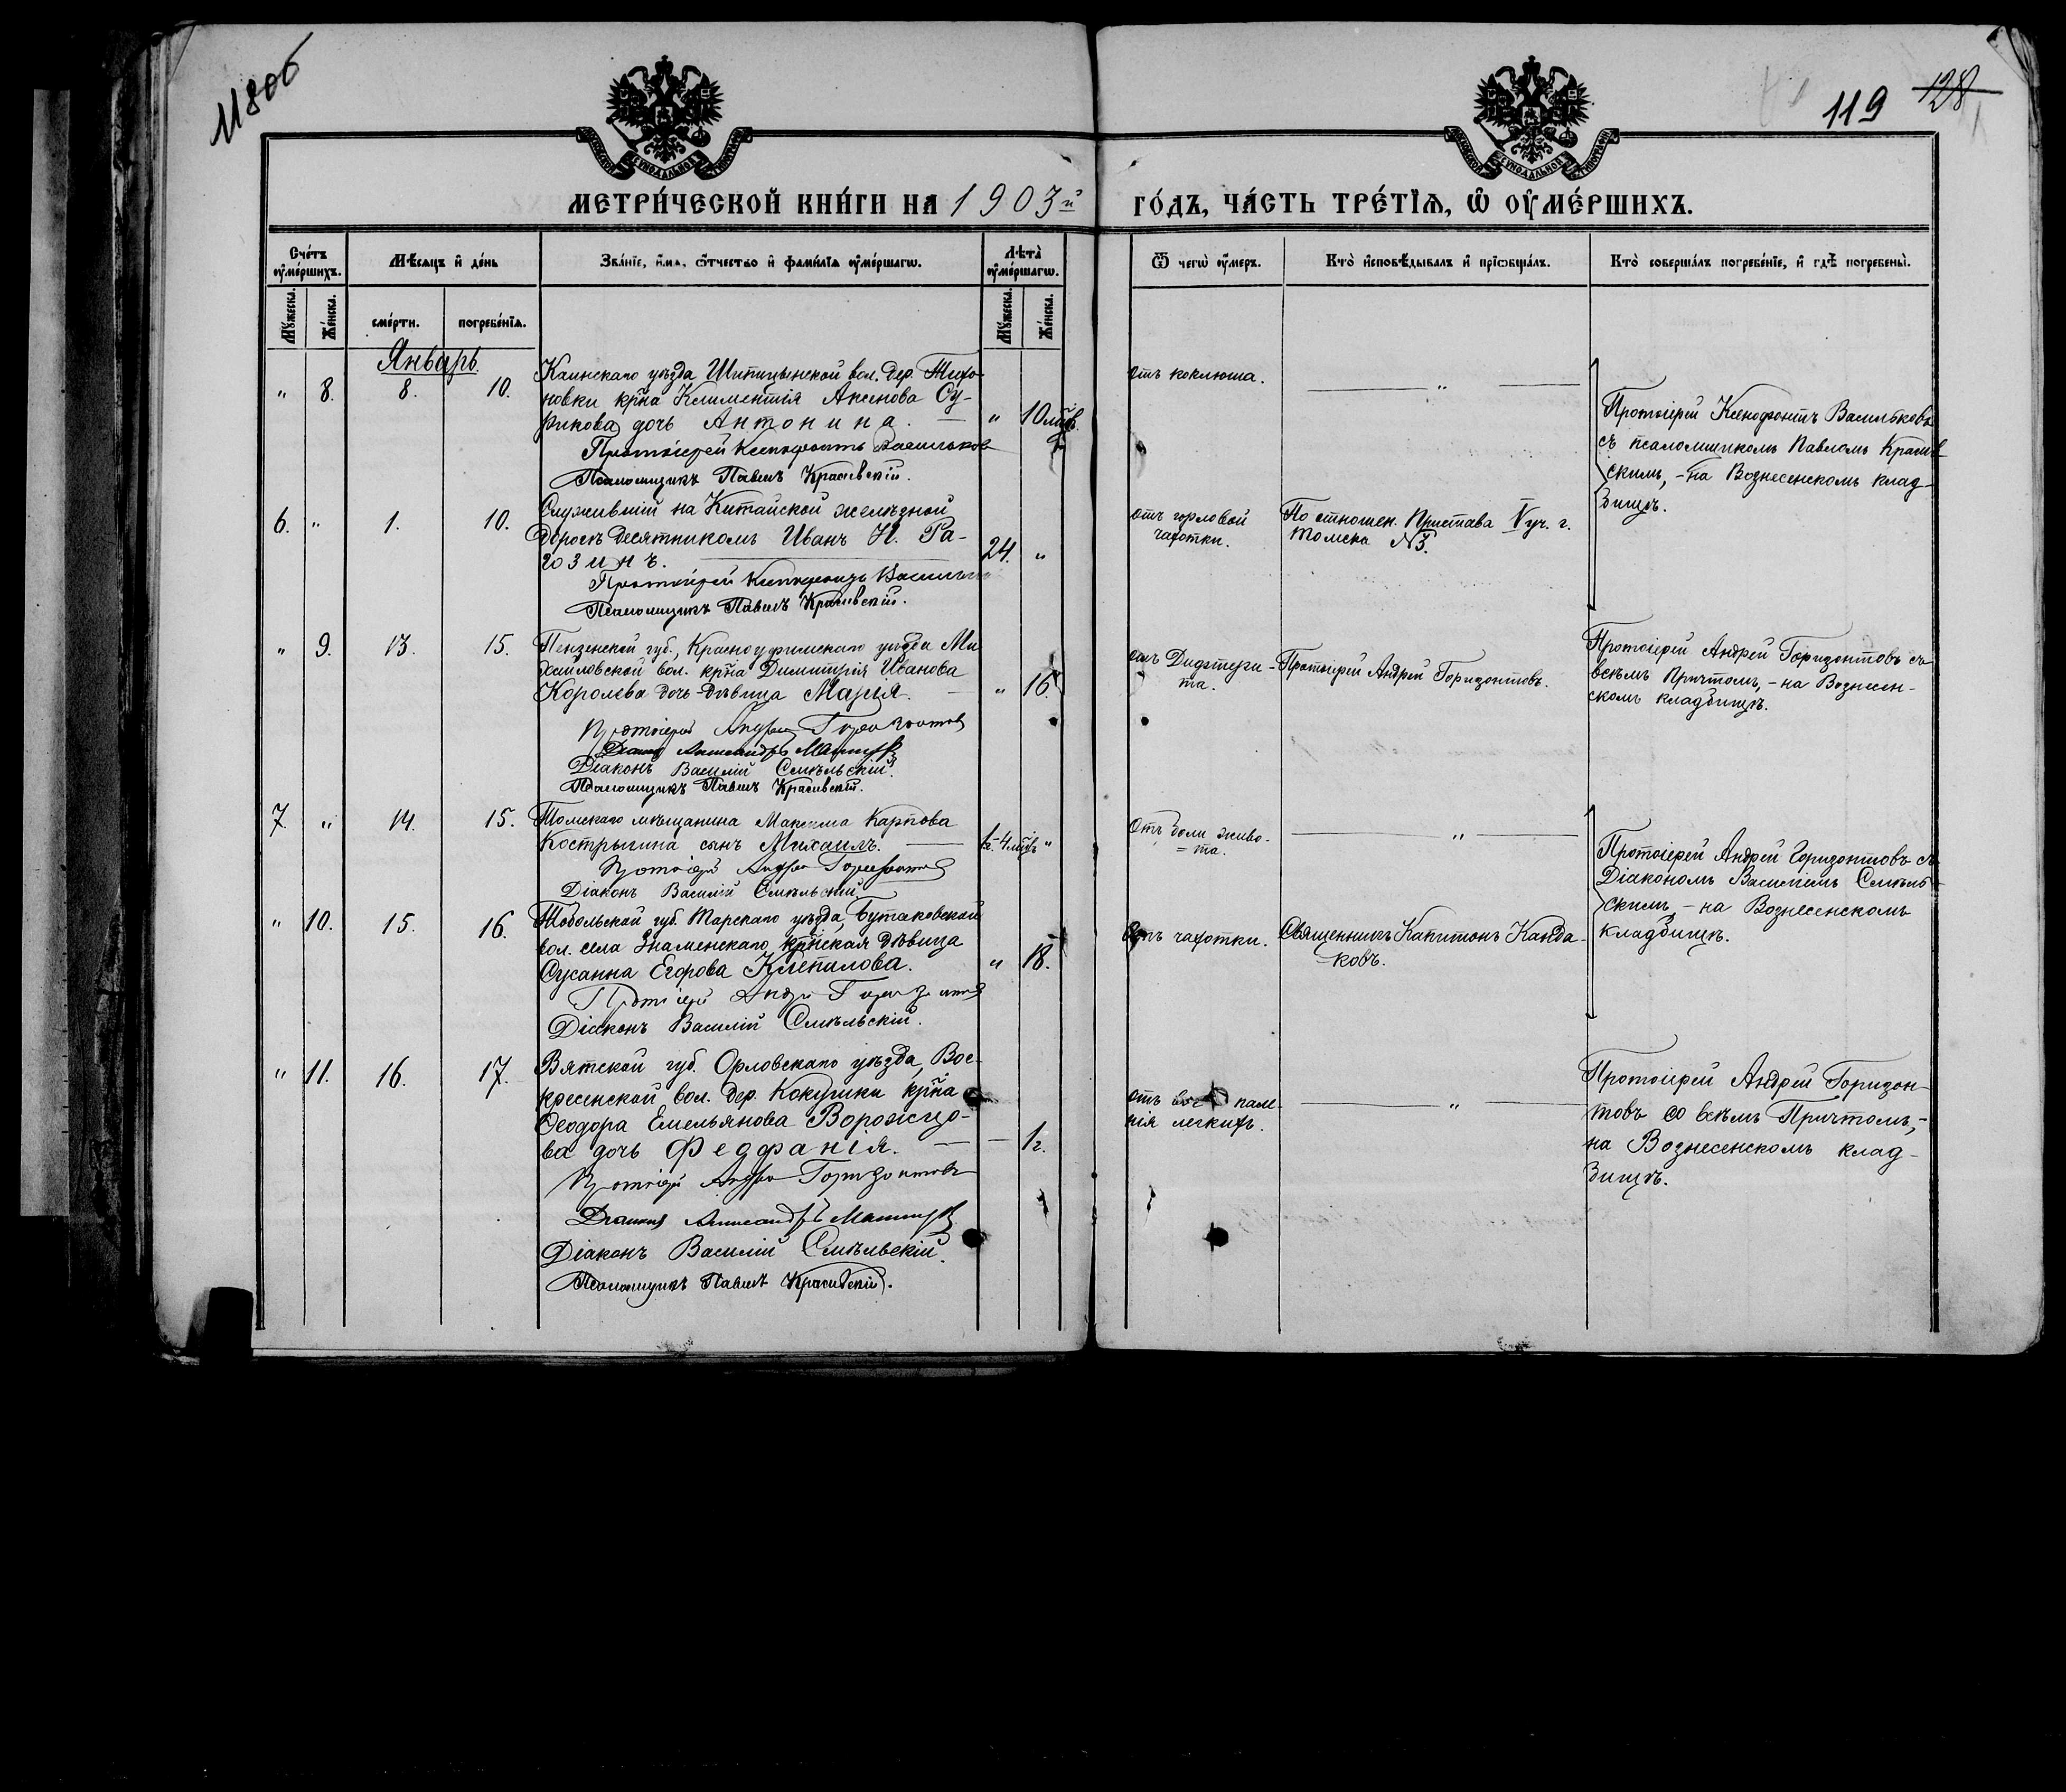 118об
119 128
МОСКОВСКОЙ СУНОДАЛЬНОЙ ТИПОГРАФІИ
МОСКОВСКОЙ СУНОДАЛЬНОЙ ТИПОГРАФІИ
МЕТРИ́ЧЕСКОЙ КНИ́ГИ НА 1903й ГО́ДЪ, ЧА́СТЬ ТРЕ́ТІѦ, Ѡ ОУМЕ́РШИХЪ.
Сче́тъ оумершихъ.
Мѣсяцъ и день
Званіе, имя, отчество и фамилія оумершагѡ.
Лѣта оумершагѡ.
Ѿ чегѡ оумеръ.
Кто исповѣдывалъ и пріѡбщалъ.
Кто совершалъ погребеніе, и гдѣ погребены.
Мужеска.
Женска.
смерти.
погребенія.
Мужеска.
Женска.
Январь.
" 8. 8. 10.
Каинскаго уѣзда Шипицынской вол. дер. Тихо-
новки крна Климентія Аксенова Су-
рикова дочь Антонина. — " 10 мцв.
Протоіерей Ксенофонтъ Васильковъ
Псаломщикъ Павелъ Красивскій.
отъ коклюша.
"
Протоіерей Ксенофонтъ Васильковъ
съ псаломщикомъ Павломъ Красив-
скимъ, - на Вознесенскомъ клад-
бищѣ.
6. " 1. 10.
Служившій на Китайской желѣзной
дорогѣ десятникомъ Иванъ Н. Ра-
гозинъ. 24. "
Протоіерей Ксенофонтъ Васильковъ
Псаломщикъ Павелъ Красивскій.
отъ горловой
чахотки.
По отношен. Пристава V уч. г.
Томска № 3.
" 9. 13. 15.
Пензенской губ., Красноуфимскаго уѣзда Ми-
хайловской вол. крна Димитрія Иванова
Королева дочь-дѣвица Марія. — " 16.
Протоіерей Андрей Горизонтовъ
Діаконъ Александръ
Діаконъ Василій Смѣльскій.
Псаломщикъ Павелъ Красивскій.
отъ Дифтери-
та.
Протоіерей Андрей Горизонтовъ.
Протоіерей Андрей Горизонтовъ съ
всѣмъ Причтомъ, - на Вознесен-
скомъ кладбищѣ.
7. " 14. 15.
Томскаго мѣщанина Максима Карпова
Кострыгина сынъ Михаилъ. — 1г. 4 мцв "
Протоіерей Андрей Горизонтовъ
Діаконъ Василій Смѣльскій.
Отъ боли живо-
=та.
"
Протоіерей Андрей Горизонтовъ съ
Діакономъ Василіемъ Смѣль-
скимъ, - на Вознесенскомъ
кладбищѣ.
" 10. 15. 16.
Тобольской губ. Тарскаго уѣзда, Бутаковской
вол. села Знаменскаго крнская дѣвица
Сусанна Егорова Клепалова. " 18.
Протоіерей Андрей Горизонтовъ
Діаконъ Василій Смѣльскій.
Отъ чахотки.
Священникъ Капитонъ Канда-
ковъ.
" 11. 16. 17.
Вятской губ. Орловскаго уѣзда, Вос-
кресенской вол. дер. Кокушки крна
Ѳеодора Емельянова Ворожцо-
ва дочь Федфанія. — 1г.
Протоіерей Андрей Горизонтовъ
Діаконъ Александръ
Діаконъ Василій Смѣльскій.
Псаломщикъ Павелъ Красивскій.
отъ воспале-
нія легкихъ.
"
Протоіерей Андрей Горизон-
товъ со всѣмъ Причтомъ, -
на Вознесенскомъ клад-
бищѣ.